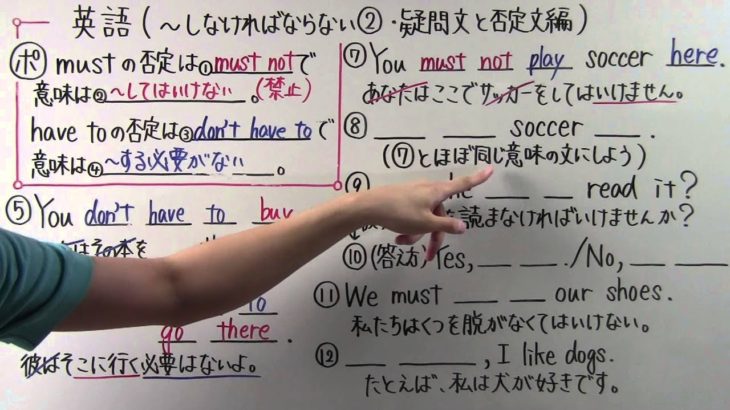 英語(～しなければならない②・疑問文と否定文編)
ポ mustの否定は①must notで
意味は②～してはいけない。(禁止)
have toの否定は③don't have toで
意味は④～する必要がない。
⑤You don't have to buy
その本を
to
go there.
彼はそこに行く必要はないよ。
⑦You must not play soccer here.
あなたはここでサッカーをしてはいけません。
⑧＿＿ ＿＿ soccer ＿＿.
(⑦とほぼ同じ意味の文にしよう)
⑨ he ＿＿ ＿＿ read it?
を読まなければいけませんか?
⑩(答え方)Yes, ＿＿ ＿＿./No, ＿＿ ＿＿
⑪We must ＿＿ ＿＿ our shoes.
私たちはくつを脱がなくてはいけない。
⑫＿＿ ＿＿, I like dogs.
たとえば、私は犬が好きです。